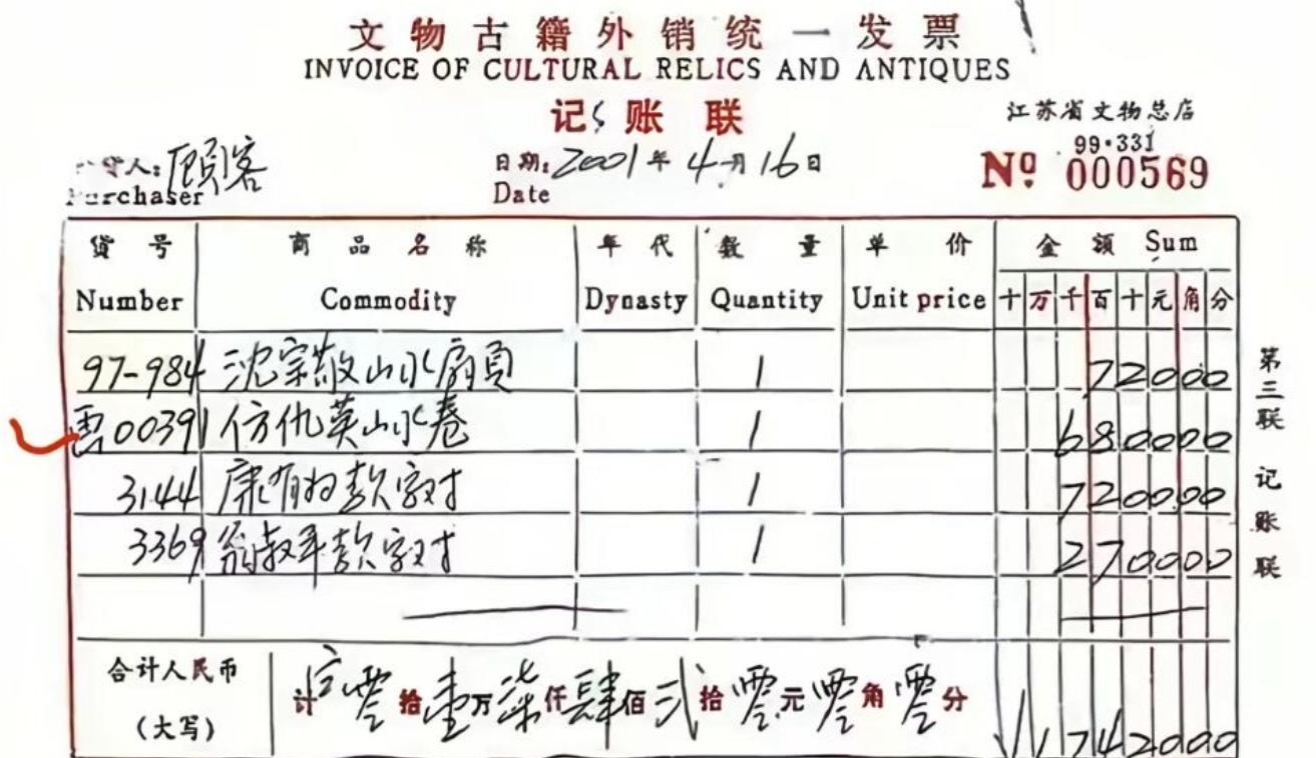 文物古籍外销统一发票
INVOICE OF CULTURAL RELICS AND ANTIQUES
记账联
江苏省文物总店
99·331
货人：顾客 日期：2001年4月16日 Nº 000569
Purchaser Date
货号 商品名称 年代 数量 单价 金额 Sum
Number Commodity Dynasty Quantity Unit price 十万千百十元角分
97-984 沈宗敬山水扇页 1 72000
云00391 仿仇英山水卷 1 680000
3144 康有为款字对 1 720000
3369 翁叔平款字对 1 270000
合计人民币 计 零拾壹万柒仟肆佰贰拾零元零角零分
（大写） 1742000
第三联 记账联